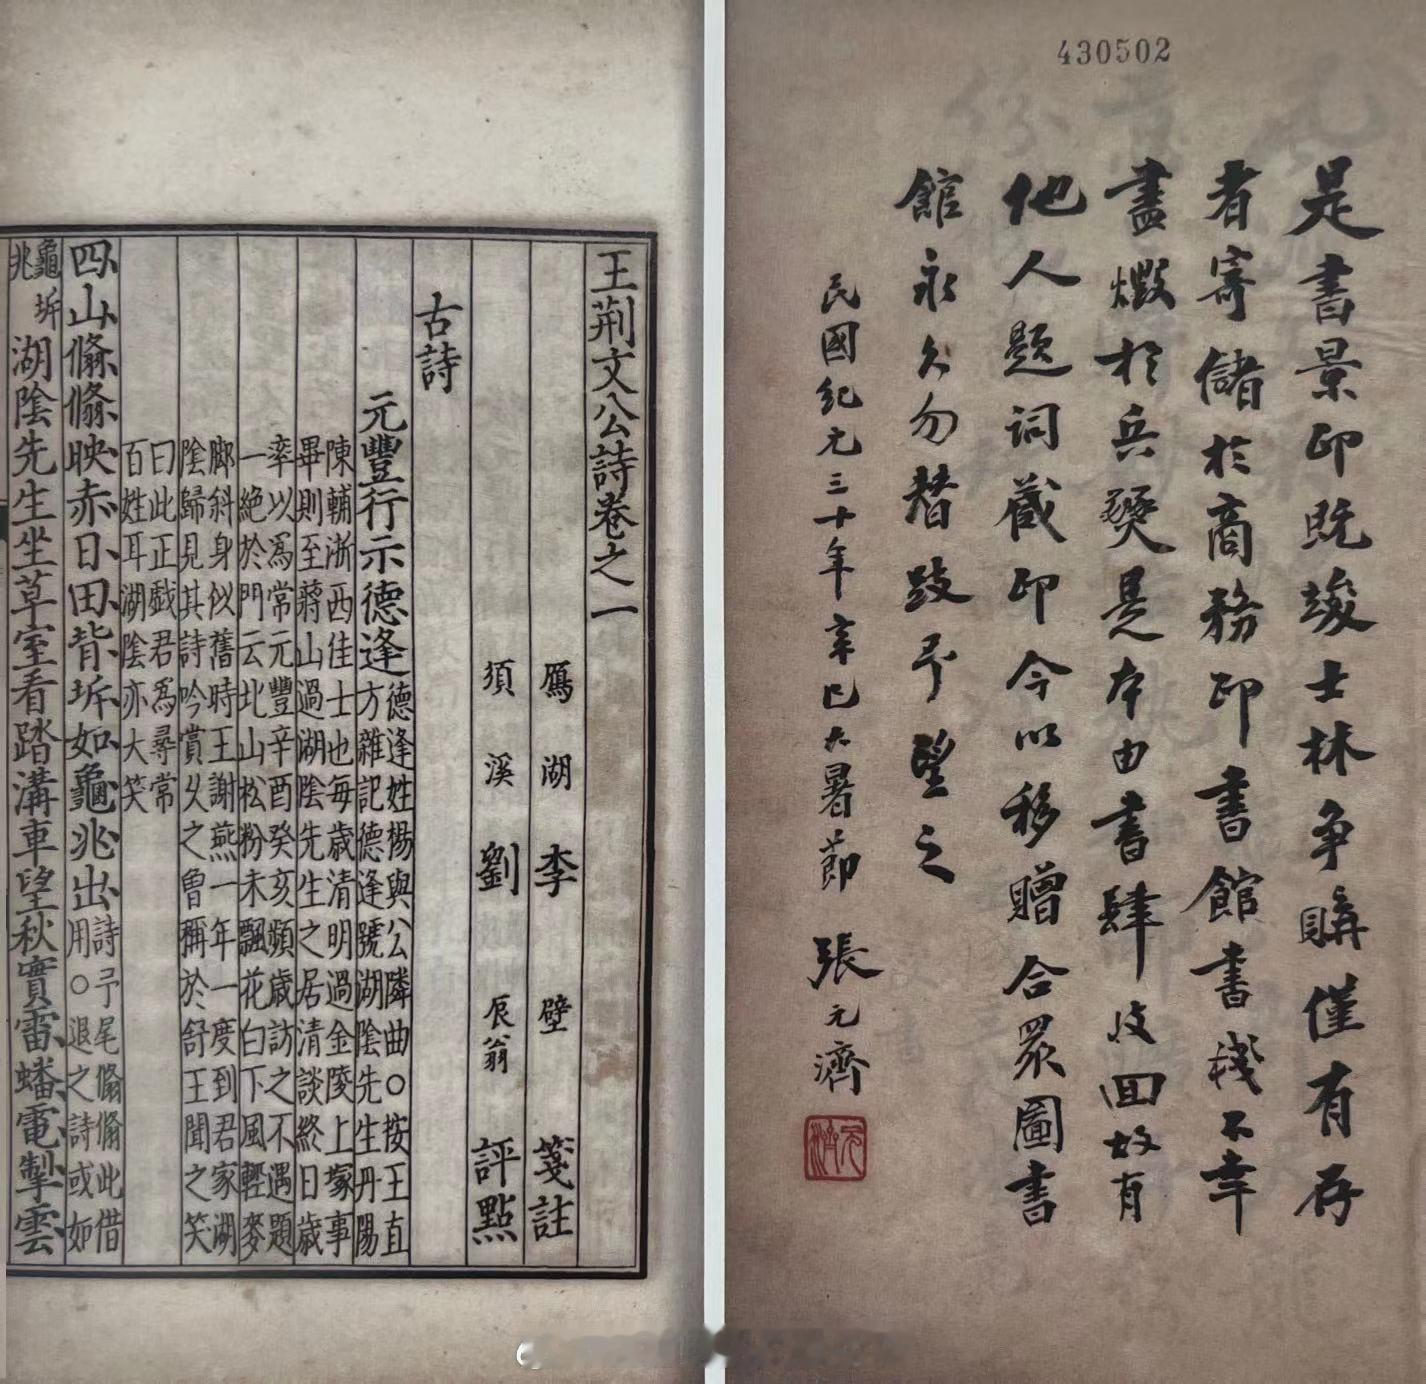 430502
是書景印既竣士林争購僅有存
者寄儲於商務印書館書棧不幸
盡燬於兵燹是本由書肆收回故有
他人題詞藏印今以移贈合眾圖書
館永久勿替跂予望之
民國紀元三十年辛巳大暑節 張元濟
元濟
王荆文公詩卷之一
鴈湖李壁箋註
須溪劉辰翁評點
古詩
元豐行示德逢 德逢姓楊與公隣曲○按王直
方雜記德逢號湖陰先生丹陽
陳輔浙西佳士也每歲清明過金陵上塚事
畢則至蔣山過湖陰先生之居清談終日歲
率以為常元豐辛酉癸亥頻歲訪之不遇題
一絕於門云北山松粉未飄花白下風輕麥
腳斜身似舊時王謝燕一年一度到君家湖
陰歸見其詩吟賞久之曾稱於舒王聞之笑
曰此正戲君為尋常
百姓耳湖陰亦大笑
四山翛翛映赤日田背坼如龜兆出 詩予尾翛翛此借
用○退之詩或如
龜坼
兆
湖陰先生坐草室看踏溝車望秋實雷蟠電掣雲